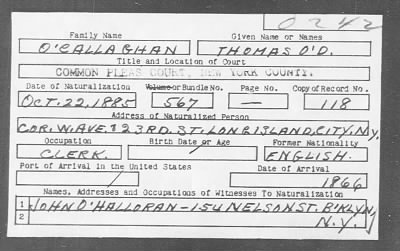 0242
Family Name Given Name or Names
O'CALLAGHAN THOMAS O'D.
Title and Location of Court
COMMON PLEAS COURT, NEW YORK COUNTY.
Date of Naturalization Volume or Bundle No. Page No. Copy of Record No.
OCT. 22, 1885 567 — 118
Address of Naturalized Person
COR. W. AVE. & 23RD. ST. LONG ISLAND CITY, N.Y.
Occupation Birth Date or Age Former Nationality
CLERK. ENGLISH.
Port of Arrival in the United States Date of Arrival
1866
Names, Addresses and Occupations of Witnesses To Naturalization
1 JOHN O'HALLORAN - 154 NELSON ST. B'KLYN
2 N.Y.